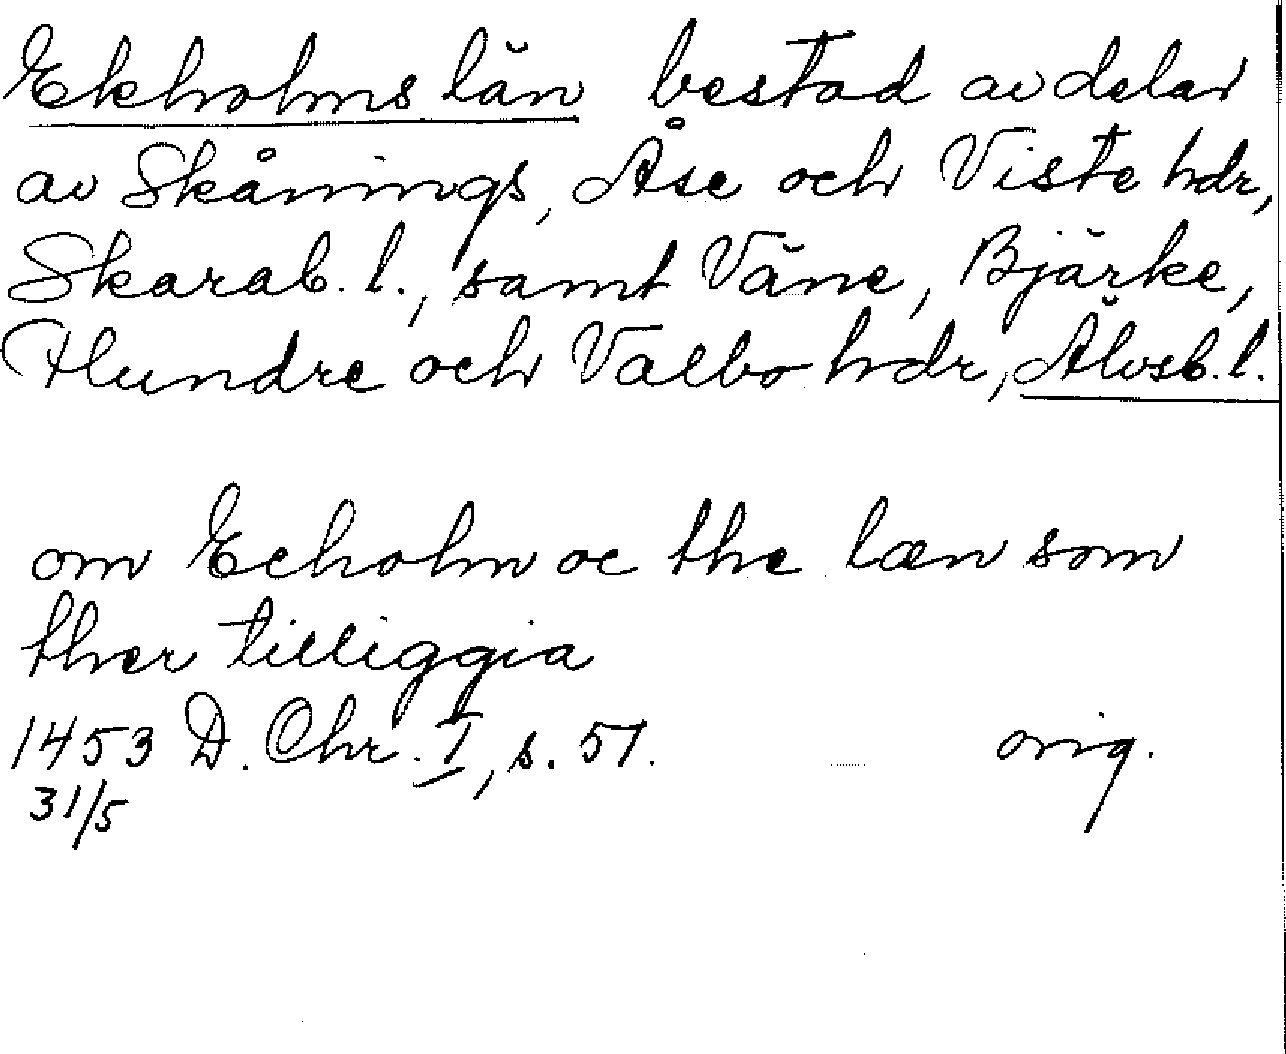 Ekholms län bestod av delar
av Skånings, Åse och Viste hdr,
Skarab. l., samt Väne, Bjärke,
Flundre och Valbo hdr, Älvsb. l.
om Echolm oc the læn som
ther tilliggia
1453 D. Chr. I, s. 51. orig.
31/5